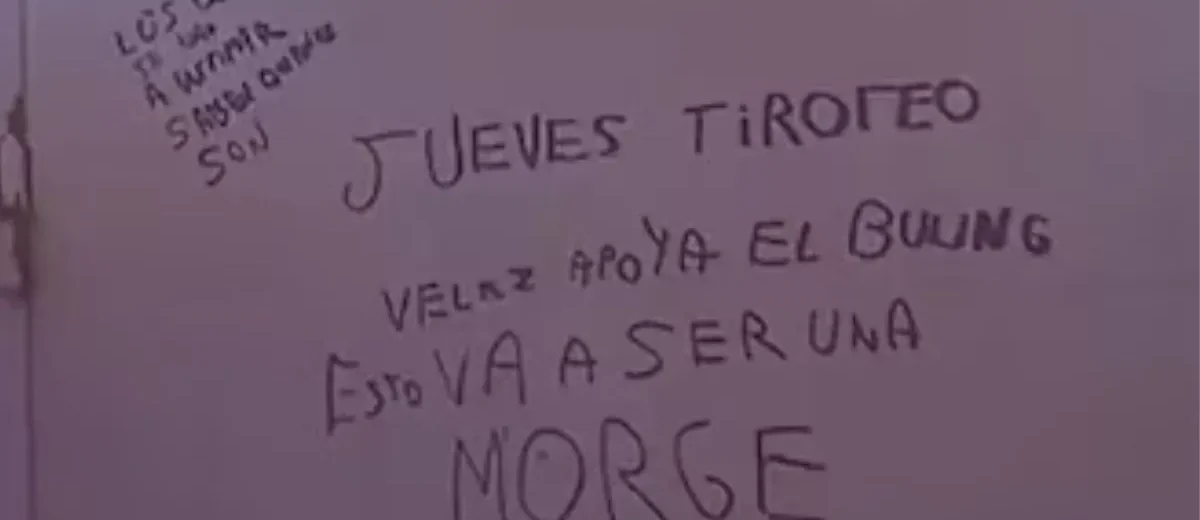 LOS
A
SON
JUEVES TIROTEO
VELAZ APOYA EL BULING
ESTO VA A SER UNA
MORGE